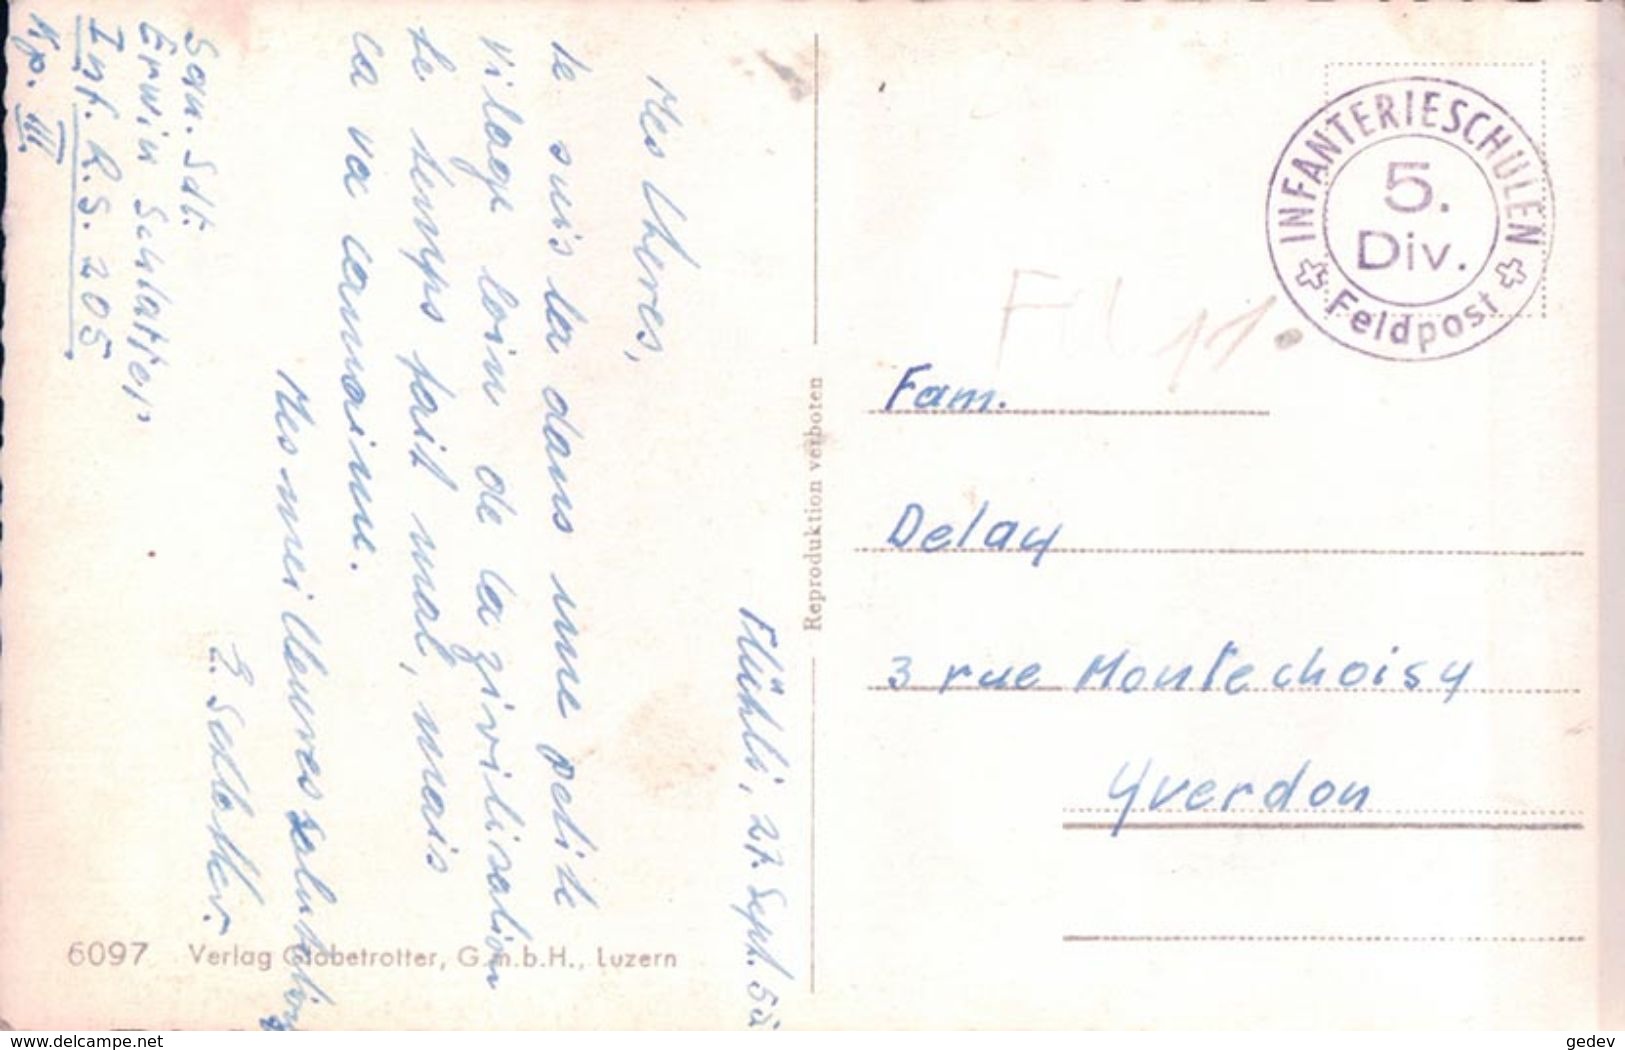 Flühli, 27. Sept.
Mes Cheres,
te suis la dans une petite
vilage loin de la zivilisation
le temps fait mal, mais
ca va
Mes meilleures salutations
E. Schlatter.
San. Sdt.
Erwin Schlatter
Inf. R.S. 205
Kp. III.
6097 Verlag Globetrotter, G.m.b.H., Luzern
Reproduktion verboten
INFANTERIESCHULEN
5.
Div.
Feldpost
Fam.
Delay
3 rue Montechoisy
Yverdon
www.delcampe.net
gedev